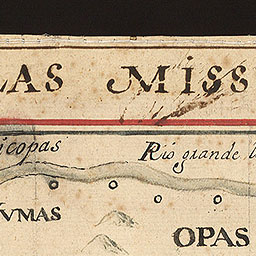 LAS MISS
icopas Rio grande
VMAS
OPAS